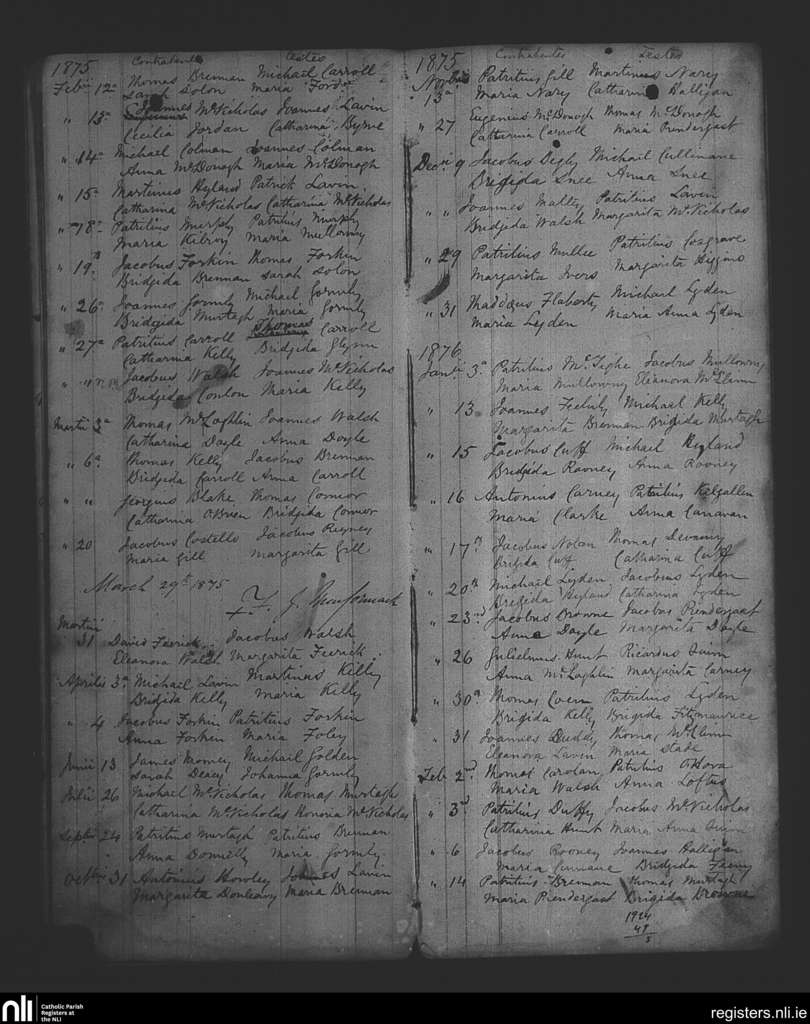 1875 Contrahentes Testes
Febii 12a Thomas Brennan Michael Carroll
Sarah Solon Maria Forde
" 13a Joannes McNicholas Joannes Lavin
Cecilia Jordan Catharina Byrne
" 14a Michael Colman Joannes Colman
Anna McDonogh Maria McDonogh
" 15a Martinus Hyland Patrick Lavin
Catharina McNicholas Catharina McNicholas
" 18a Patritius Murphy Patritius Murphy
Maria Kilroy Maria Mullowny
" 19a Jacobus Forkin Thomas Forkin
Bridgida Brennan Sarah Solon
" 26a Joannes Gormly Michael Gormly
Bridgida Murtagh Maria Gormly
" 27a Patritius Carroll Thomas Carroll
Catharina Kelly Bridgida Glynn
" " Jacobus Walsh Joannes McNicholas
Bridgida Conlon Maria Kelly
Martii 3a Thomas McLoghlin Joannes Walsh
Catharina Doyle Anna Doyle
" 6a Thomas Kelly Jacobus Brennan
Bridgida Carroll Anna Carroll
" " Georgius Blake Thomas Connor
Catharina OBrien Bridgida Connor
" 20 Jacobus Costello Jacobus
Maria Gill Margarita Gill
March 29th 1875
+ F. J. MacCormack
Martii
31 David Feerick Jacobus Walsh
Eleanora Walsh Margarita Feerick
Aprilis 3a Michael Lavin Martinus Kelly
Bridgida Kelly Maria Kelly
" 4 Jacobus Forkin Patritius Forkin
Anna Forkin Maria Foley
Junii 13 James Mooney Michael Golden
Sarah Deacy Johanna Gormly
Julii 26 Michael McNicholas Thomas Murtagh
Catharina McNicholas Honoria McNicholas
Septbris 24 Patritius Murtagh Patritius Brennan
Anna Donnelly Maria Gormly
Octobris 31 Antonius Howley Joannes Lavin
Margarita Donleavy Maria Brennan
1875 Contrahentes Testes
Novbris
13a Patritius Gill Martinus Nary
Maria Nary Catharina Halligan
" 27 Eugenius McDonogh Thomas McDonogh
Catharina Carroll Maria Prendergast
Decii 9 Jacobus Digby Michael Cullinane
Bregida Snee Anna Snee
" " Joannes Mally Patritius Lavin
Bridgida Walsh Margarita McNicholas
" 29 Patritius Mullee Patritius Cosgrave
Margarita Ivers Margarita Higgins
" 31 Thaddaeus Flaherty Michael Lyden
Maria Lyden Maria Anna Lyden
1876
Janii 3a Patritius McTeghe Jacobus Mullowny
Maria Mullowny Eleanora McGlinn
" 13 Joannes Michael Kelly
Margarita Brennan Brigida Murtagh
" 15 Jacobus Cuff Michael Hyland
Bridgida Rooney Anna Rooney
" 16 Antonius Carney Patritius Kilgallen
Maria Clarke Anna Canavan
" 17a Jacobus Nolan Thomas Devanny
Brigida Cuff Catharina Cuff
" 20a Michael Lyden Jacobus Lyden
Bregida Hyland Catharina Lyden
" 23rd Jacobus Browne Jacobus Prendergast
Anna Doyle Margarita Doyle
" 26 Gulielmus Hunt Ricardus Quinn
Anna McLoghlin Margarita Carney
" 30a Thomas Coen Patritius Lyden
Brigida Kelly Brigida Fitzmaurice
" 31 Joannes Duddy Thomas McGlinn
Eleanora Lavin Maria Slade
Feb 2nd Thomas Carolan Patritius OHora
Maria Walsh Anna Loftus
" 3d Patritius Duffy Jacobus McNicholas
Catharina Hunt Maria Anna Quinn
" 6 Jacobus Rooney Joannes Halligan
Maria Bridgida
" 14 Patritius Brennan Thomas Murtagh
Maria Prendergast Brigida Browne
1924
48
5
nli Catholic Parish
Registers at
the NLI
registers.nli.ie